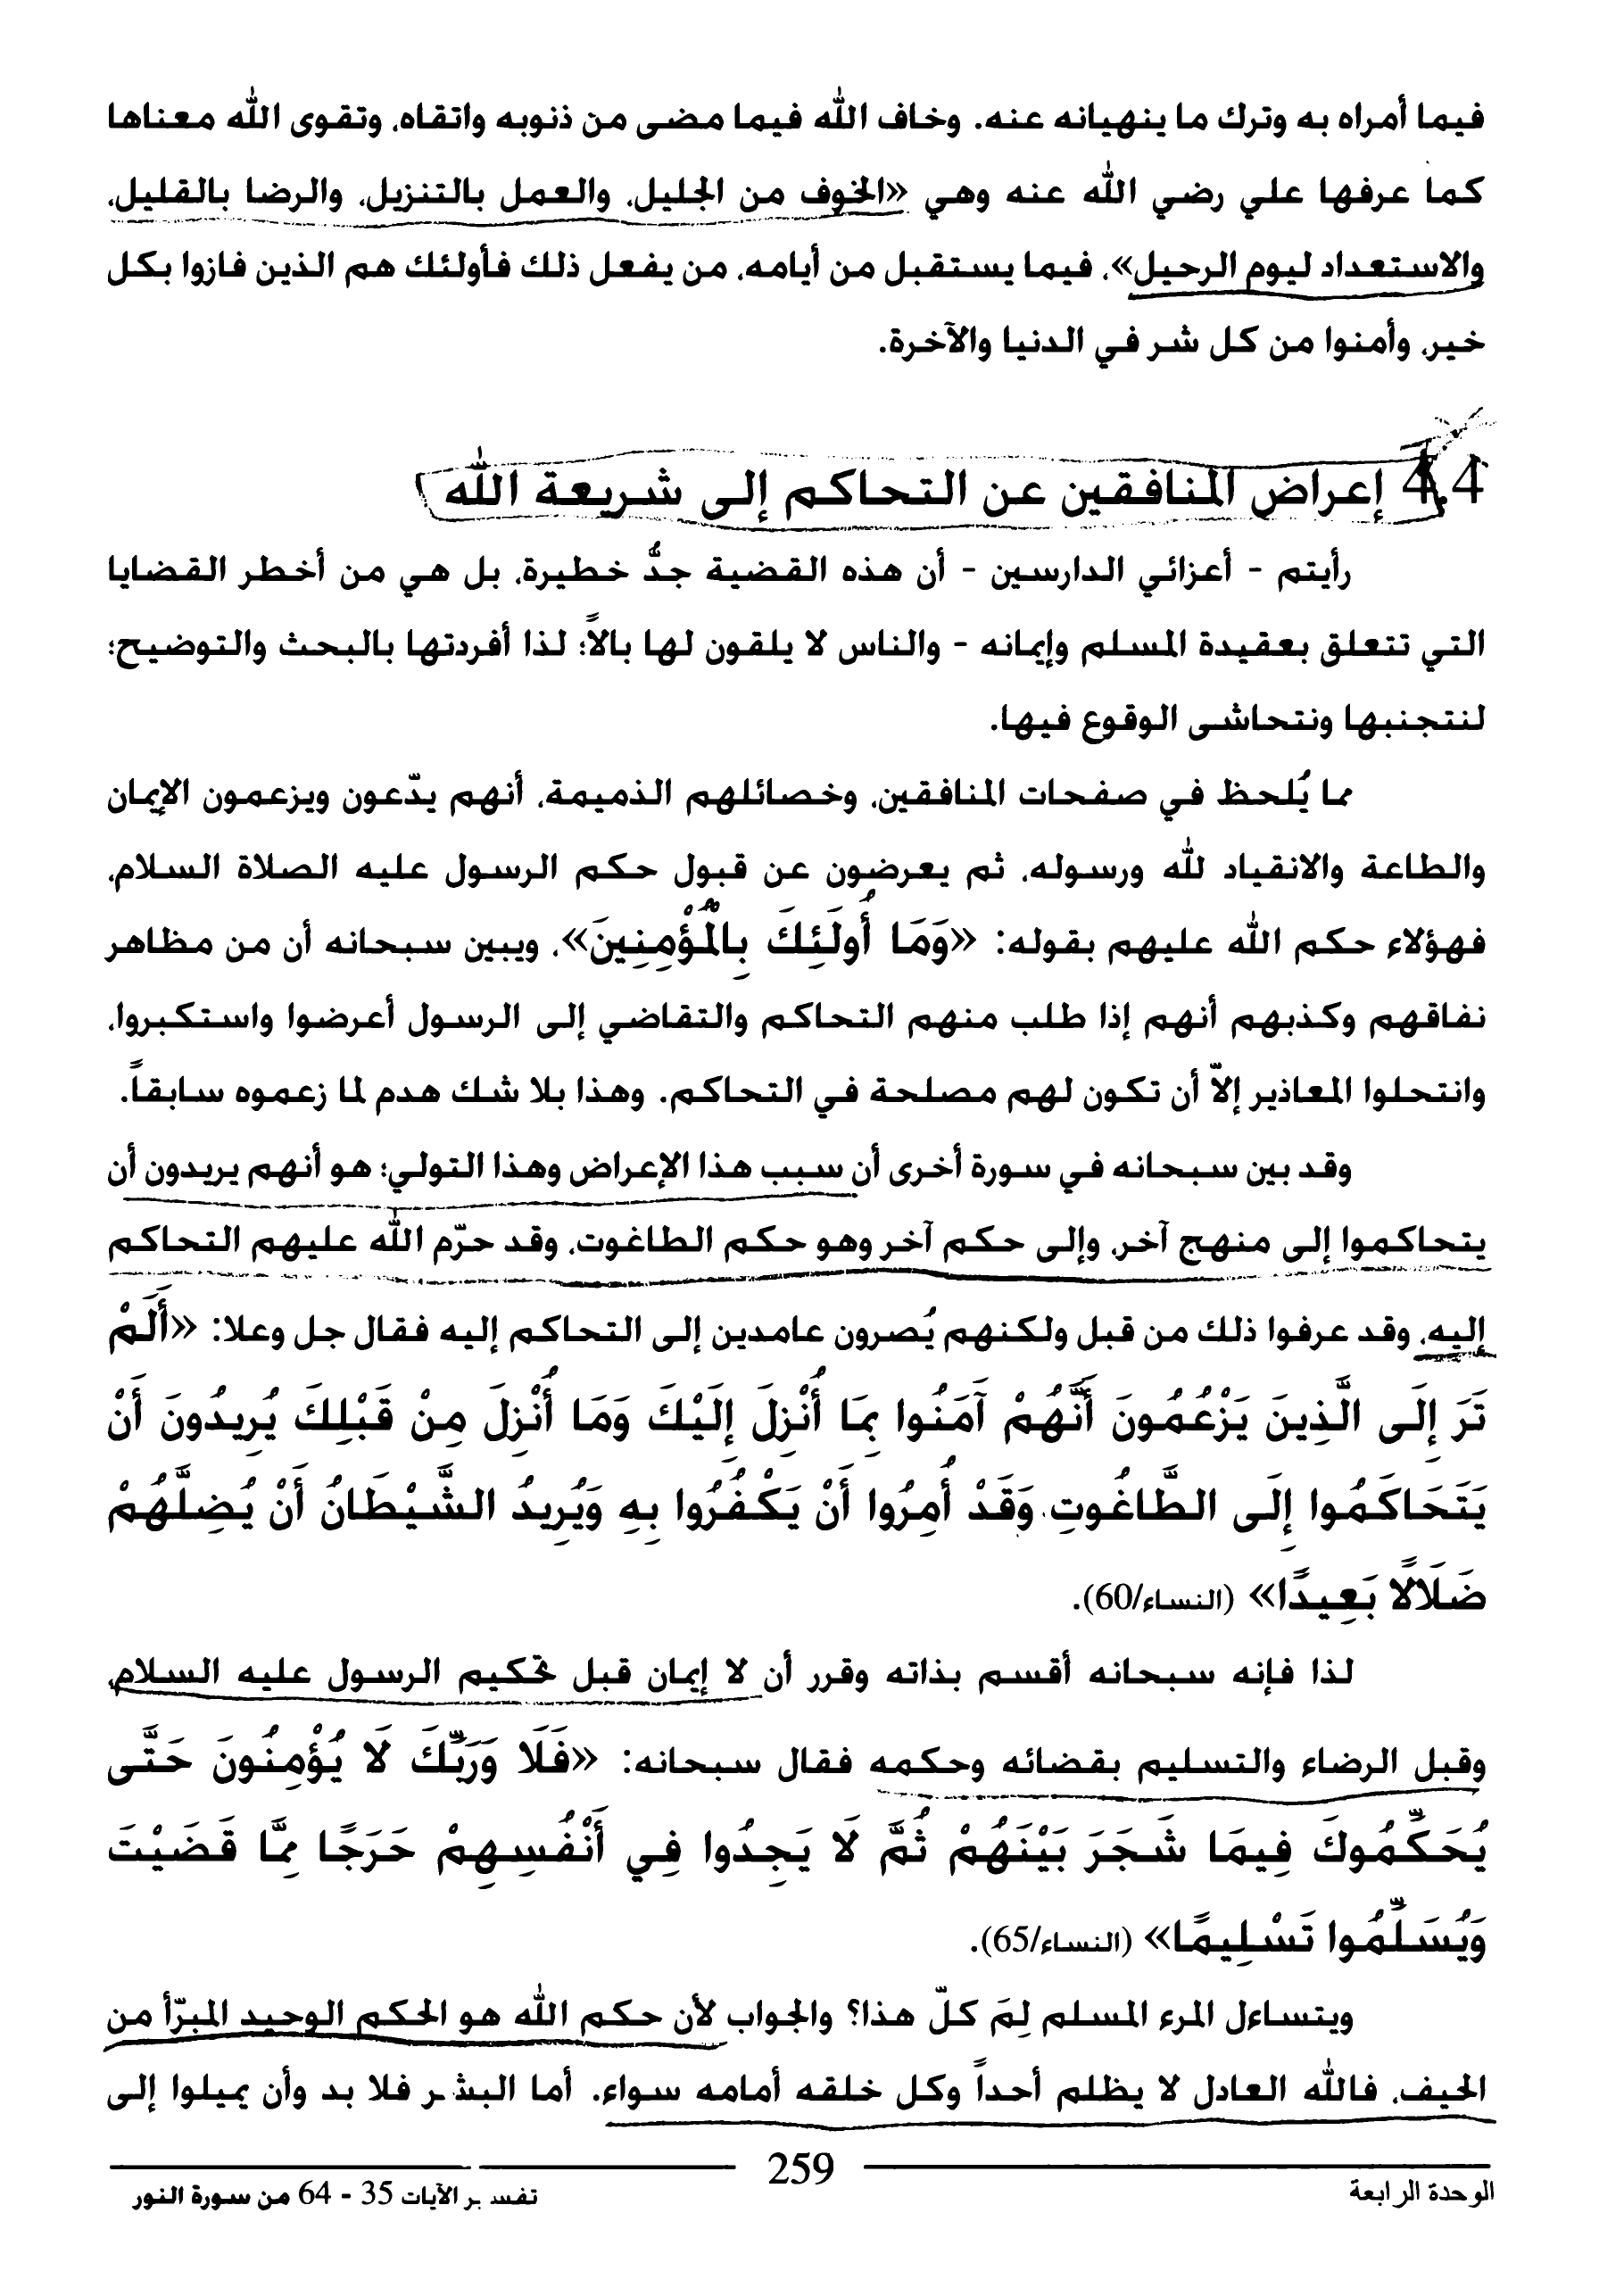 فيما أمراه به وترك ما ينهيانه عنه. وخاف الله فيما مضى من ذنوبه واتقاه، وتقوى الله معناها
كما عرفها علي رضي الله عنه وهي «الخوف من الجليل، والعمل بالتنزيل، والرضا بالقليل،
والاستعداد ليوم الرحيل»، فيما يستقبل من أيامه، من يفعل ذلك فأولئك هم الذين فازوا بكل
خير، وأمنوا من كل شر في الدنيا والآخرة.
4.4 إعراض المنافقين عن التحاكم إلى شريعة الله
رأيتم - أعزائي الدارسين - أن هذه القضية جدُّ خطيرة، بل هي من أخطر القضايا
التي تتعلق بعقيدة المسلم وإيمانه - والناس لا يلقون لها بالاً؛ لذا أفردتها بالبحث والتوضيح؛
لنتجنبها ونتحاشى الوقوع فيها.
مما يُلحظ في صفحات المنافقين، وخصائلهم الذميمة، أنهم يدّعون ويزعمون الإيمان
والطاعة والانقياد لله ورسوله، ثم يعرضون عن قبول حكم الرسول عليه الصلاة السلام،
فهؤلاء حكم الله عليهم بقوله: «وَمَا أُولَئِكَ بِالْمُؤْمِنِينَ»، ويبين سبحانه أن من مظاهر
نفاقهم وكذبهم أنهم إذا طلب منهم التحاكم والتقاضي إلى الرسول أعرضوا واستكبروا،
وانتحلوا المعاذير إلاّ أن تكون لهم مصلحة في التحاكم. وهذا بلا شك هدم لما زعموه سابقاً.
وقد بين سبحانه في سورة أخرى أن سبب هذا الإعراض وهذا التولي؛ هو أنهم يريدون أن
يتحاكموا إلى منهج آخر، وإلى حكم آخر وهو حكم الطاغوت، وقد حرّم الله عليهم التحاكم
إليه، وقد عرفوا ذلك من قبل ولكنهم يُصرون عامدين إلى التحاكم إليه فقال جل وعلا: «أَلَمْ
تَرَ إِلَى الَّذِينَ يَزْعُمُونَ أَنَّهُمْ آمَنُوا بِمَا أُنْزِلَ إِلَيْكَ وَمَا أُنْزِلَ مِنْ قَبْلِكَ يُرِيدُونَ أَنْ
يَتَحَاكَمُوا إِلَى الطَّاغُوتِ وَقَدْ أُمِرُوا أَنْ يَكْفُرُوا بِهِ وَيُرِيدُ الشَّيْطَانُ أَنْ يُضِلَّهُمْ
ضَلَالًا بَعِيدًا» (النساء/60).
لذا فإنه سبحانه أقسم بذاته وقرر أن لا إيمان قبل تحكيم الرسول عليه السلام،
وقبل الرضاء والتسليم بقضائه وحكمه فقال سبحانه: «فَلَا وَرَبِّكَ لَا يُؤْمِنُونَ حَتَّى
يُحَكِّمُوكَ فِيمَا شَجَرَ بَيْنَهُمْ ثُمَّ لَا يَجِدُوا فِي أَنْفُسِهِمْ حَرَجًا مِمَّا قَضَيْتَ
وَيُسَلِّمُوا تَسْلِيمًا» (النساء/65).
ويتساءل المرء المسلم لِمَ كلّ هذا؟ والجواب لأن حكم الله هو الحكم الوحيد المبرّأ من
الحيف، فالله العادل لا يظلم أحداً وكل خلقه أمامه سواء. أما البشر فلا بد وأن يميلوا إلى
259
الوحدة الرابعة
تفسير الآيات 35 - 64 من سورة النور